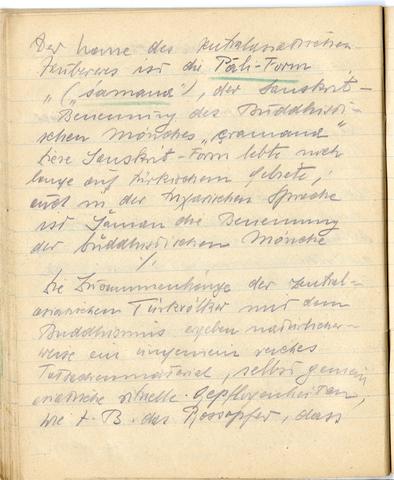 Der Name des zentralasiatischen
Zauberers ist die Pāli-Form
„(samana“), der Sanskrit-
Benennung des Buddhisti-
schen Mönches „çramana“
Diese Sanskrit-Form lebte noch
lange auf türkischem Gebiete,
und in der Sprache
ist Šaman die Benennung
der buddhistischen Mönche
Die Zusammenhänge der zentral-
asiatischen Türkvölker mit dem
Buddhismus ergeben natürlicher-
weise ein ungemein reiches
Tatsachenmaterial, selbst gemein
asiatische rituelle Gepflogenheiten,
wie z. B. das Rossopfer, dass